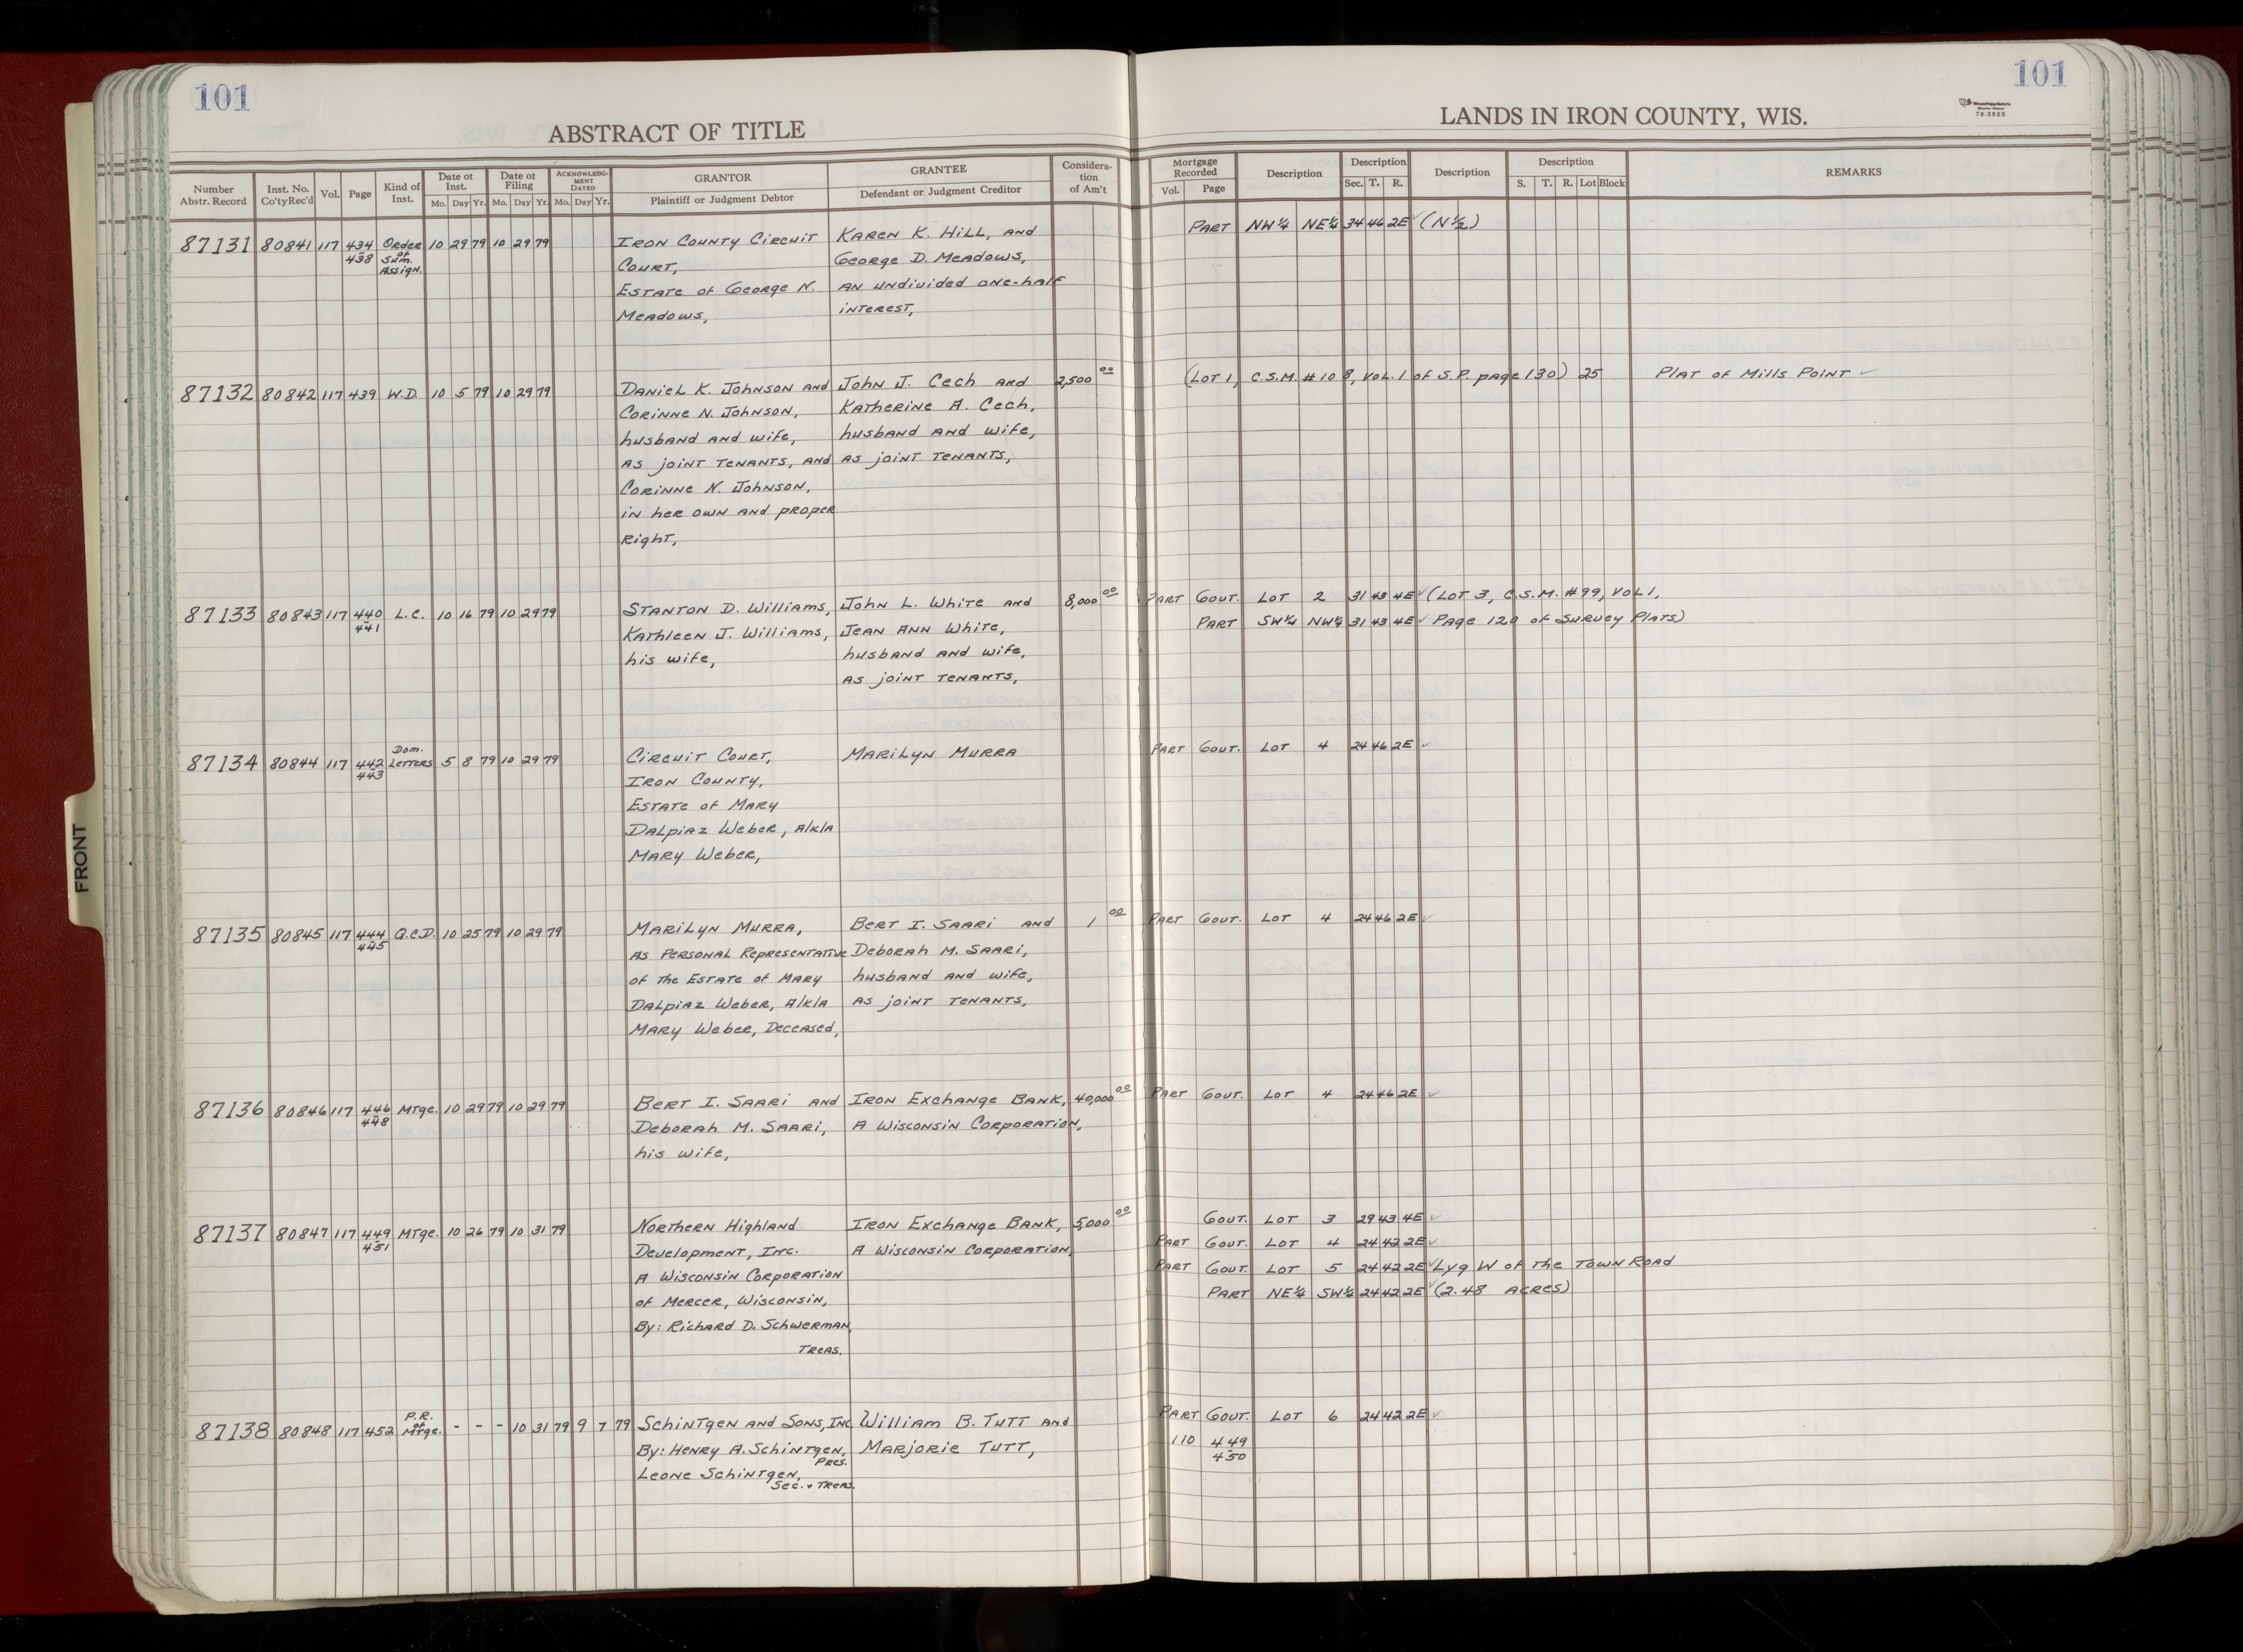 101
101
ABSTRACT OF TITLE
LANDS IN IRON COUNTY, WIS.
70-3525
Number Abstr. Record
Inst. No. Co'ty Rec'd
Vol.
Page
Kind of Inst.
Date of Inst.
Mo. Day Yr.
Date of Filing
Mo. Day Yr.
ACKNOWLEDGMENT DATED
Mo. Day Yr.
GRANTOR
Plaintiff or Judgment Debtor
GRANTEE
Defendant or Judgment Creditor
Considera-
tion
of Am't
Mortgage
Recorded
Vol. Page
Description
Description
Sec. T. R.
Description
Description
S. T. R. Lot Block
REMARKS
87131 80841 117 434-438 Order of Sum. Assign. 10 29 79 10 29 79
Iron County Circuit
Court,
Estate of George N.
Meadows,
Karen K. Hill, and
George D. Meadows,
an undivided one-half
interest,
Part NW¼ NE¼ 34 46 2E ✓ (N½)
87132 80842 117 439 W.D. 10 5 79 10 29 79
Daniel K. Johnson and
Corinne N. Johnson,
husband and wife,
as joint tenants, and
Corinne N. Johnson,
in her own and proper
right,
John J. Cech and
Katherine A. Cech,
husband and wife,
as joint tenants,
2,500 00
(Lot 1, C.S.M. #108, Vol. 1 of S.P. page 130) 25 Plat of Mills Point ✓
87133 80843 117 440-441 L.C. 10 16 79 10 29 79
Stanton D. Williams,
Kathleen J. Williams,
his wife,
John L. White and
Jean Ann White,
husband and wife,
as joint tenants,
8,000 00
Part Gout. Lot 2 31 43 4E ✓ (Lot 3, C.S.M. #99, Vol 1,
Part SW¼ NW¼ 31 43 4E ✓ Page 120 of Survey Plats)
87134 80844 117 442-443 Dom. Letters 5 8 79 10 29 79
Circuit Court,
Iron County,
Estate of Mary
Dalpiaz Weber, A/k/a
Mary Weber,
Marilyn Murra
Part Gout. Lot 4 24 46 2E ✓
87135 80845 117 444-445 Q.C.D. 10 25 79 10 29 79
Marilyn Murra,
as Personal Representative
of the Estate of Mary
Dalpiaz Weber, A/k/a
Mary Weber, Deceased,
Bert I. Saari and
Deborah M. Saari,
husband and wife,
as joint tenants,
1 00
Part Gout. Lot 4 24 46 2E ✓
87136 80846 117 446-448 Mtge. 10 29 79 10 29 79
Bert I. Saari and
Deborah M. Saari,
his wife,
Iron Exchange Bank,
A Wisconsin Corporation,
40,000 00
Part Gout. Lot 4 24 46 2E ✓
87137 80847 117 449-451 Mtge. 10 26 79 10 31 79
Northern Highland
Development, Inc.
A Wisconsin Corporation
of Mercer, Wisconsin,
By: Richard D. Schwerman,
Treas.
Iron Exchange Bank,
A Wisconsin Corporation,
5,000 00
Gout. Lot 3 29 43 4E ✓
Part Gout. Lot 4 24 42 2E ✓
Part Gout. Lot 5 24 42 2E ✓ Lyg W of the Town Road
Part NE¼ SW¼ 24 42 2E ✓ (2.48 acres)
87138 80848 117 452 P.R. of Mtge. - - - 10 31 79 9 7 79
Schintgen and Sons, Inc
By: Henry A. Schintgen,
Pres.
Leone Schintgen,
Sec. + Treas.
William B. Tutt and
Marjorie Tutt,
Part Gout. Lot 6 24 42 2E ✓
110 449-450
FRONT